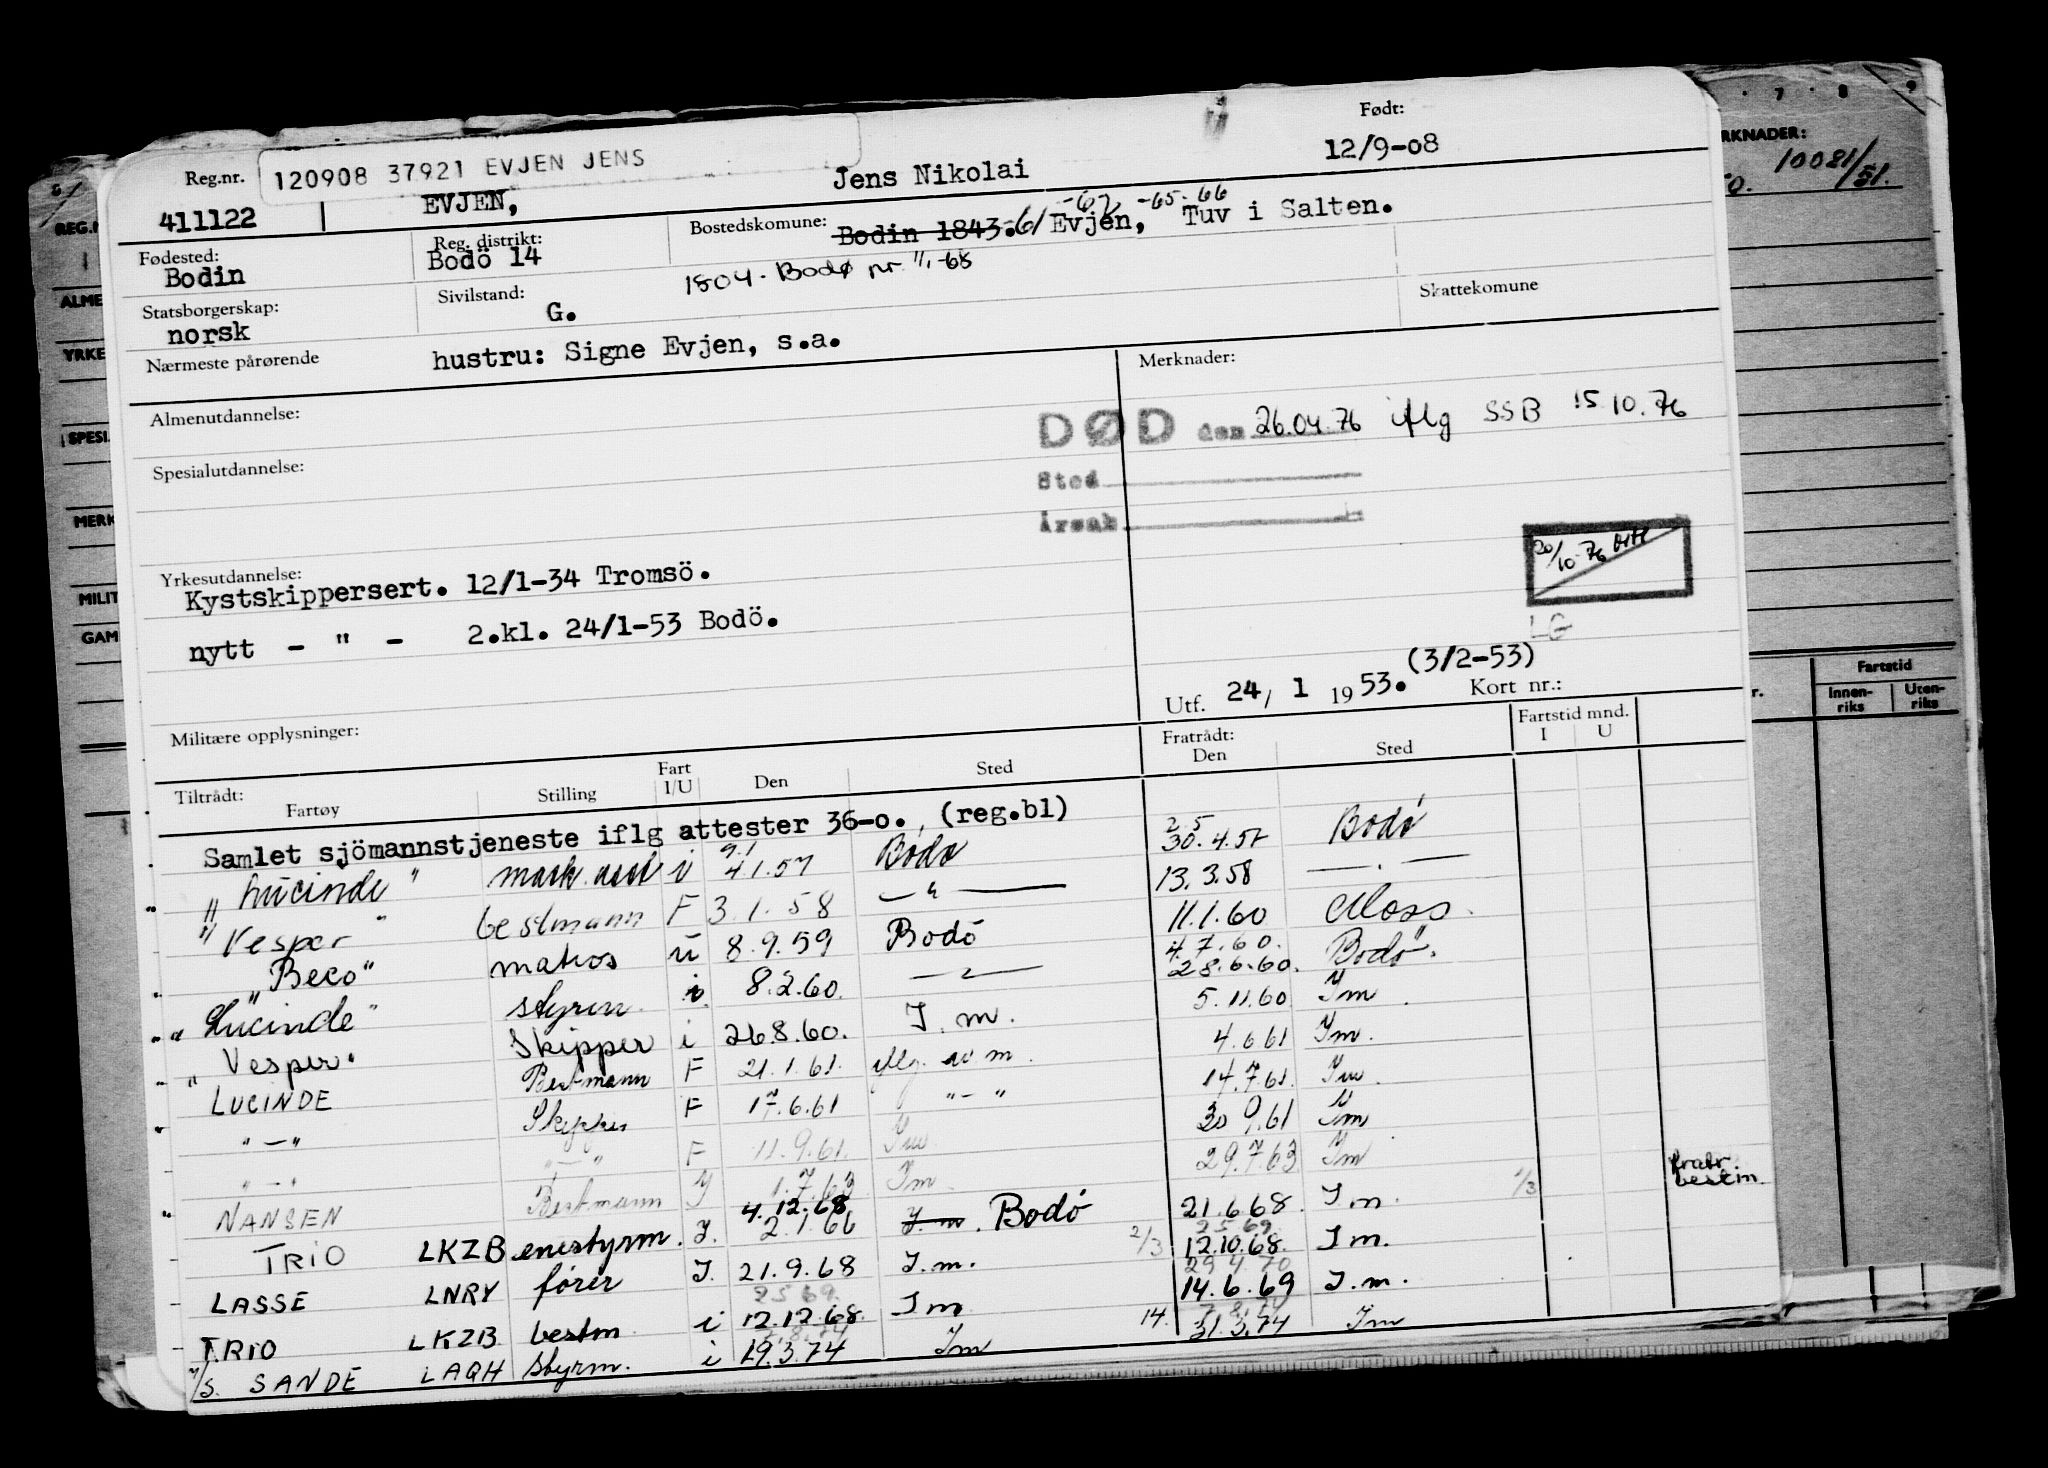 Født:
Reg.nr.
120908 37921 EVJEN JENS
Jens Nikolai
12/9-08
411122
EVJEN,
Fødested:
Bodin
Reg. distrikt:
Bodö 14
Bostedskomune:
Bodin 1843.-61 -62 -65-66
Evjen, Tuv i Salten.
1804. Bodø nr 1/1-68
Statsborgerskap:
norsk
Sivilstand:
G.
Skattekomune
Nærmeste pårørende
hustru: Signe Evjen, s.a.
Almenutdannelse:
Merknader:
DØD den 26.04.76 iflg SSB 15 10.76
Sted
Årsak
Spesialutdannelse:
20/10-76
LG
Yrkesutdannelse:
Kystskippersert. 12/1-34 Tromsö.
nytt - " - 2.kl. 24/1-53 Bodö.
(3/2-53)
Utf. 24, 1 1953. Kort nr.:
Militære opplysninger:
Tiltrådt:
Fartøy Stilling Fart I/U Den Sted Fratrådt: Den Sted Fartstid mnd. I U
Samlet sjömannstjeneste iflg attester 36-o., (reg.bl)
"Lucinde" mask. i 4.1.57 Bodø 30.4.57 Bodø
"Vesper" bestmann F 3.1.58 — " — 13.3.58 — . —
"Beco" matros u 8.9.59 Bodö 11.1.60 Moss.
"Lucinde" styrm. i 8.2.60. — " — 4.7.60. 28.6.60. Bodø.
"Vesper" Skipper i 26.8.60. I.m. 5.11.60 Im
LUCINDE Bestmann F 21.1.61. iflg. m. 4.6.61 Im.
" — " Skipper F 17.6.61 " — " 14.7.61. Im.
" — " " — " F 11.9.61. Im 30.9.61 Im
NANSEN Bestmann I 1.7.63 Im 29.7.63 Im
TRIO LKZB enestyrm. I. 4.12.68 2.1.66 I.m. Bodö 21.6.68. I m. 1/3 fratr. bestm.
LASSE LNRY fører I. 21.9.68 I.m. 2/3 25 69. 12.10.68. I m.
TRIO LKZB bestm i 25 69. 12.12.68. Im 29 4 70 14.6.69 I.m.
M/S. SANDE LAQH styrm. i 19.3.74 Im 14. 31.3.74 Im
RKNADER:
10081/51.
REG.N
ALME
YRKE
SPESI
MERK
MILIT
GAM
Fartstid
Innenriks
Utenriks